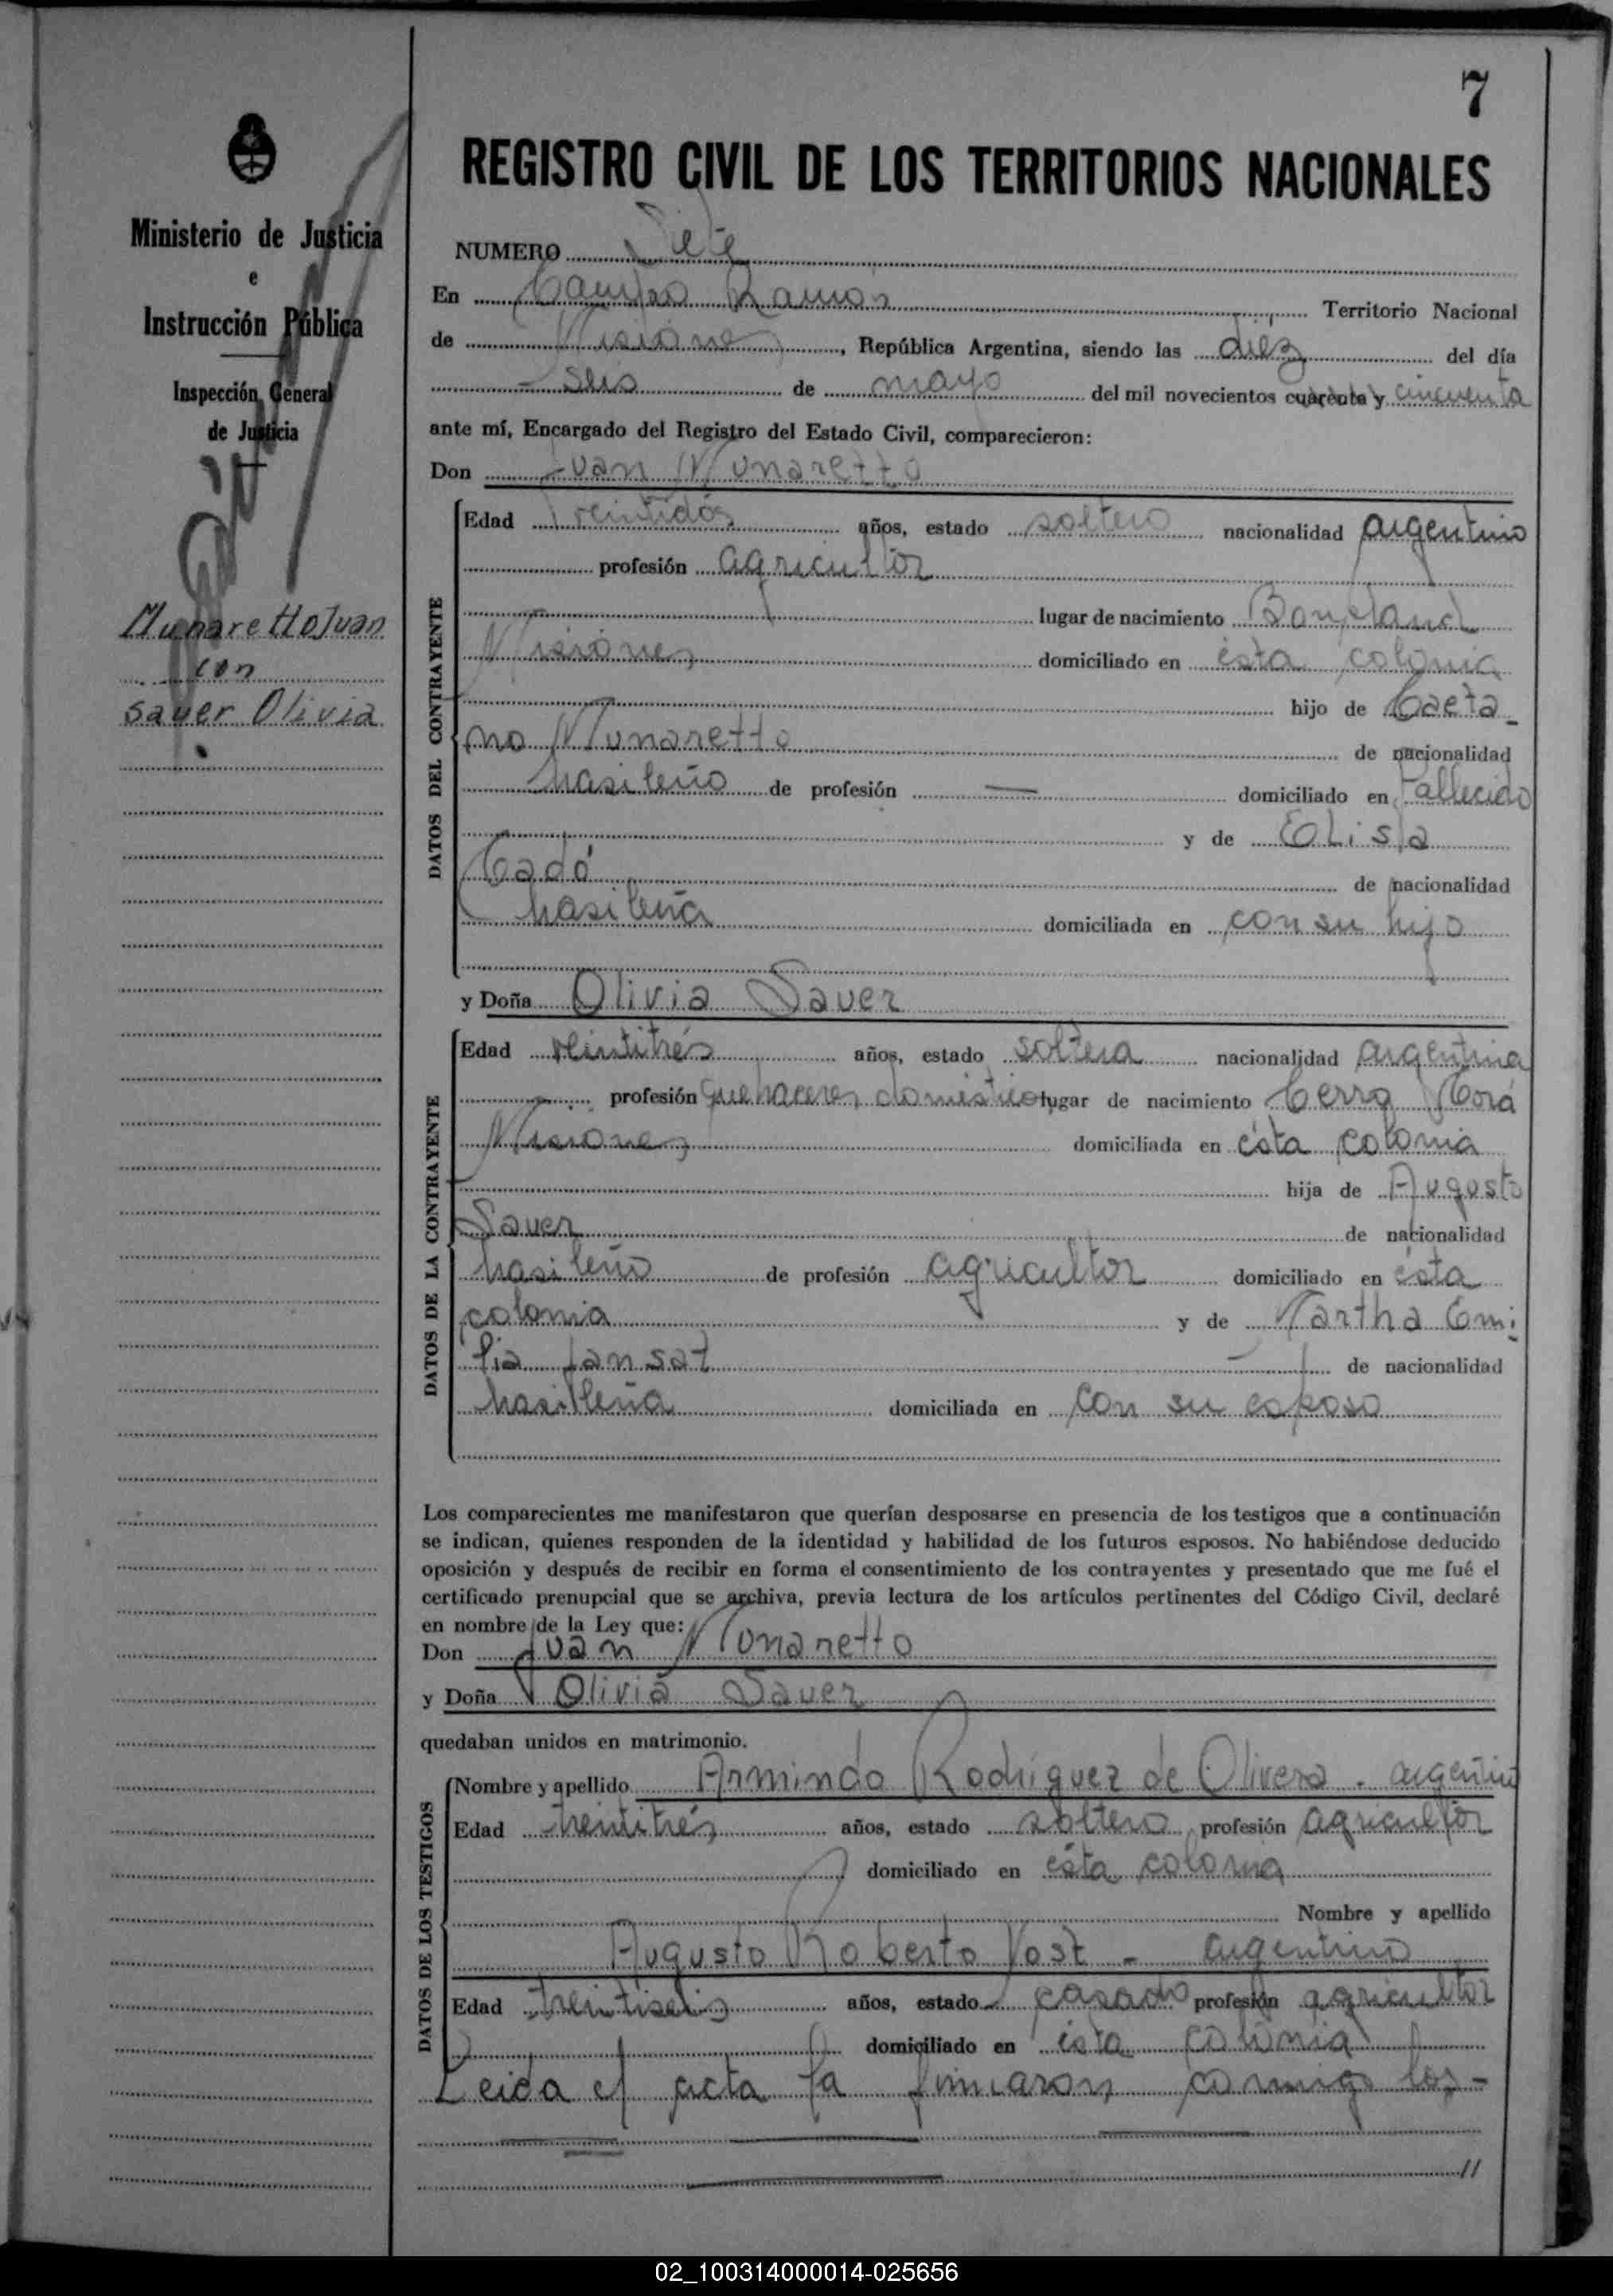 7
REGISTRO CIVIL DE LOS TERRITORIOS NACIONALES
Ministerio de Justicia
e
Instrucción Pública
Inspección General
de Justicia
Munaretto Juan
con
Sauer Olivia
NUMERO Siete
En Campo Ramón Territorio Nacional
de Misiones, República Argentina, siendo las diez del día
seis de mayo del mil novecientos cuarenta y cincuenta
ante mí, Encargado del Registro del Estado Civil, comparecieron:
Don Juan Munaretto
DATOS DEL CONTRAYENTE
Edad Treintidós años, estado soltero nacionalidad argentino
profesión agricultor
lugar de nacimiento Bonpland
Misiones domiciliado en ésta colonia
hijo de Caeta-
no Munaretto de nacionalidad
brasileño de profesión — domiciliado en Fallecido
y de Elisa
Cadó de nacionalidad
brasileña domiciliada en con su hijo
y Doña Olivia Sauer
DATOS DE LA CONTRAYENTE
Edad veintitrés años, estado soltera nacionalidad argentina
profesión quehaceres domésticos lugar de nacimiento Cerro Corá
Misiones domiciliada en ésta colonia
hija de Augusto
Sauer de nacionalidad
brasileño de profesión agricultor domiciliado en ésta
colonia y de Martha Emi-
lia Jansat de nacionalidad
brasileña domiciliada en con su esposo
Los comparecientes me manifestaron que querían desposarse en presencia de los testigos que a continuación
se indican, quienes responden de la identidad y habilidad de los futuros esposos. No habiéndose deducido
oposición y después de recibir en forma el consentimiento de los contrayentes y presentado que me fué el
certificado prenupcial que se archiva, previa lectura de los artículos pertinentes del Código Civil, declaré
en nombre de la Ley que:
Don Juan Munaretto
y Doña Olivia Sauer
quedaban unidos en matrimonio.
DATOS DE LOS TESTIGOS
Nombre y apellido Armindo Rodríguez de Olivera . argentino
Edad treintitrés años, estado soltero profesión agricultor
domiciliado en ésta colonia
Nombre y apellido
Augusto Roberto Vost - argentino
Edad treintiseis años, estado casado profesión agricultor
domiciliado en ésta colonia
Leida el acta la firmaron conmigo los-
//
02_100314000014-025656